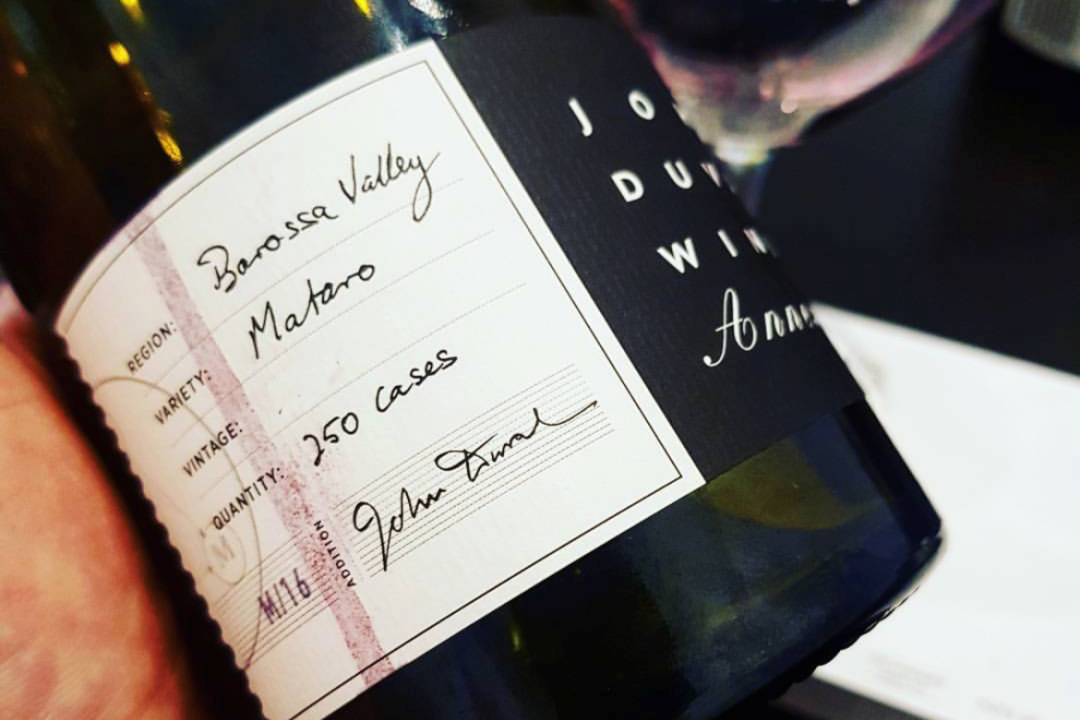 REGION: Barossa Valley
VARIETY: Mataro
VINTAGE:
QUANTITY: 250 cases
ADDITION
John Duval
M
M/16
JO
DUV
WIN
Anne